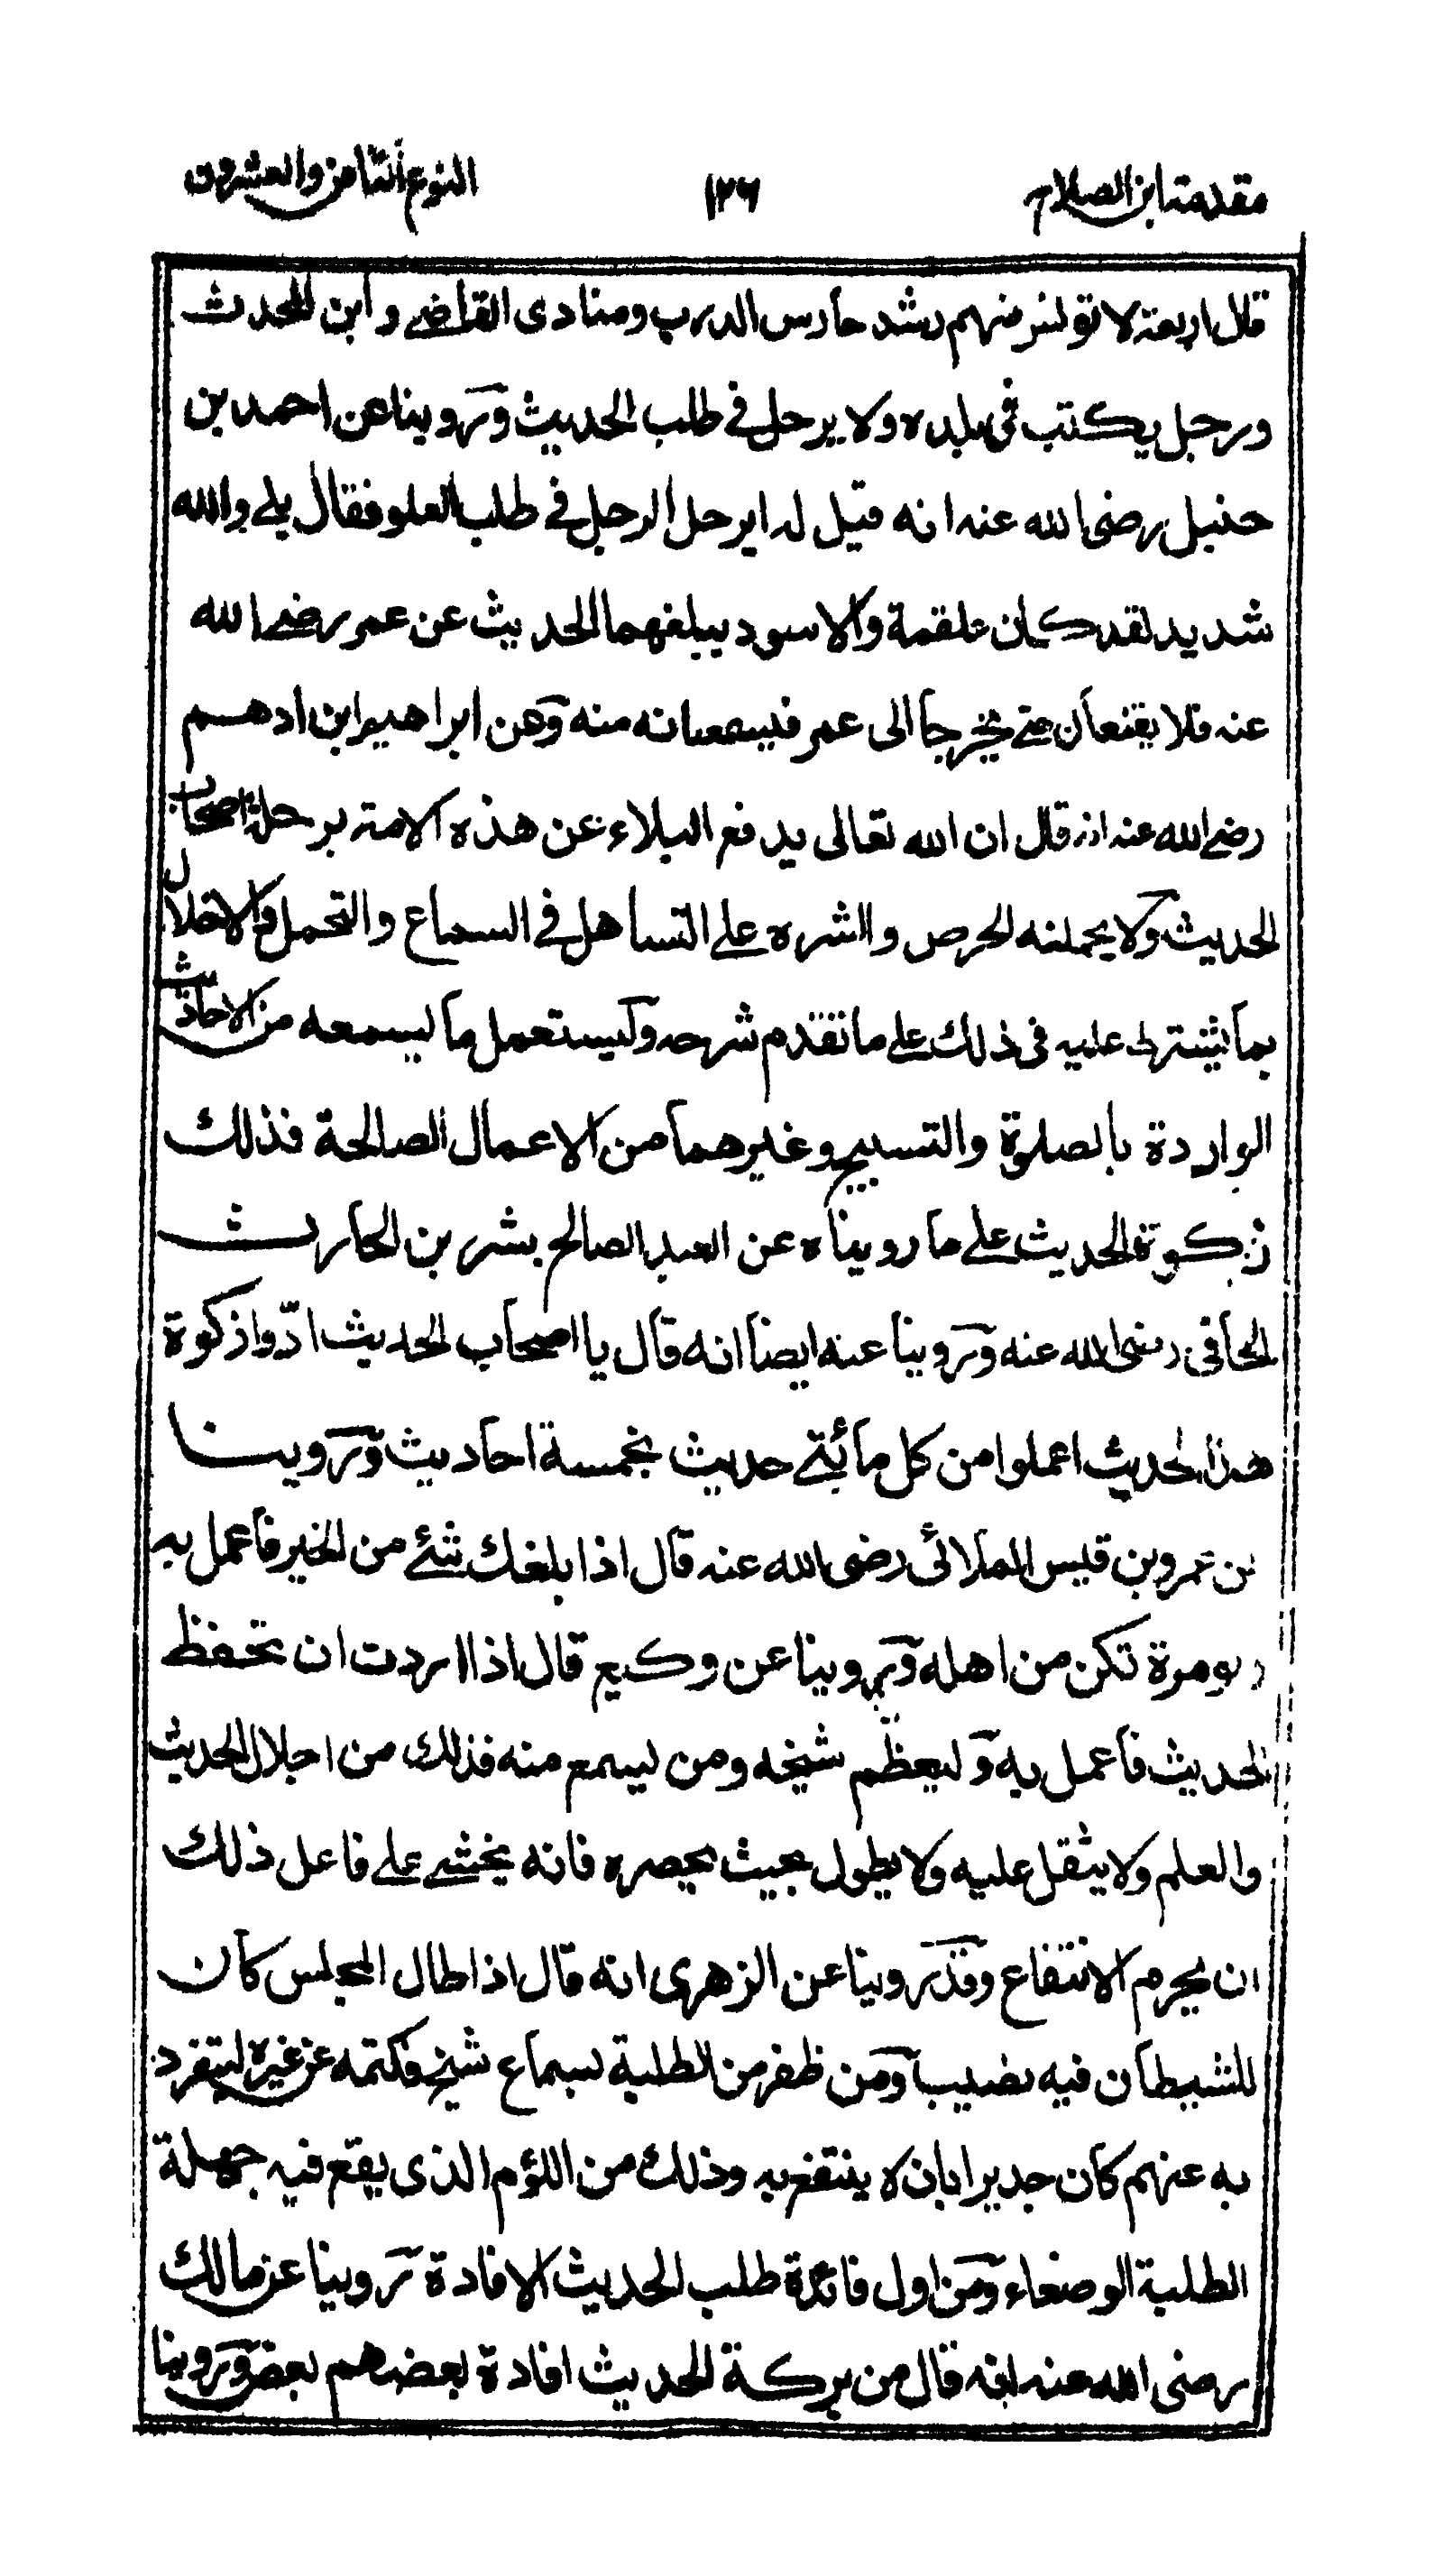 مقدمة ابن الصلاح ١٢٦ النوع الثامن والعشرون
قال اربعة لا تونس منهم رشد حارس الدرب ومنادى القاضے وابن المحدث
ورجل يكتب فى بلده ولا يرحل فے طلب الحديث وروينا عن احمد بن
حنبل رضى الله عنه انه قيل له ايرحل الرجل فے طلب العلو فقال بلے والله
شديد لقد كان علقمة والاسود يبلغهما الحديث عن عمر رضے الله
عنه فلا يقنعان حتے يخرجا الى عمر فيسمعانه منه وعن ابراهيم ابن ادهم
رضے الله عنه انه قال ان الله تعالى يدفع البلاء عن هذه الامة برحلة اصحاب
الحديث ولا يحملنه الحرص والشره علے التساهل فے السماع والتحمل والاخلال
بما يشترط عليه فى ذلك علے ما تقدم شرحه وليستعمل ما يسمعه من الاحاديث
الواردة بالصلوة والتسبيح وغيرهما من الاعمال الصالحة فذلك
زكوة الحديث علے ما رويناه عن العبد الصالح بشر بن الحارث
الحافى رضى الله عنه وروينا عنه ايضا انه قال يا اصحاب الحديث ادّوا زكوة
هذا الحديث اعملوا من كل مائتے حديث بخمسة احاديث وروينا
عن عمرو بن قيس الملائى رضى الله عنه قال اذا بلغك شئے من الخير فاعمل به
ولو مرة تكن من اهله وروينا عن وكيع قال اذا اردت ان تحفظ
الحديث فاعمل به وليعظّم شيخه ومن يسمع منه فذلك من اجلال الحديث
والعلم ولا يثقل عليه ولا يطول بحيث يحصره فانه يخشے علے فاعل ذلك
ان يحرم الانتفاع وقد روينا عن الزهرى انه قال اذا طال المجلس كان
للشيطان فيه نصيب ومن ظفر من الطلبة بسماع شيخ فكتمه عن غيره لينفرد
به عنهم كان جديرا بان لا ينتفع به وذلك من اللؤم الذى يقع فيه جهلة
الطلبة الوضعاء ومن اول فائدة طلب الحديث الافادة روينا عن مالك
رضى الله عنه انه قال من بركة الحديث افادة بعضهم بعضا وروينا